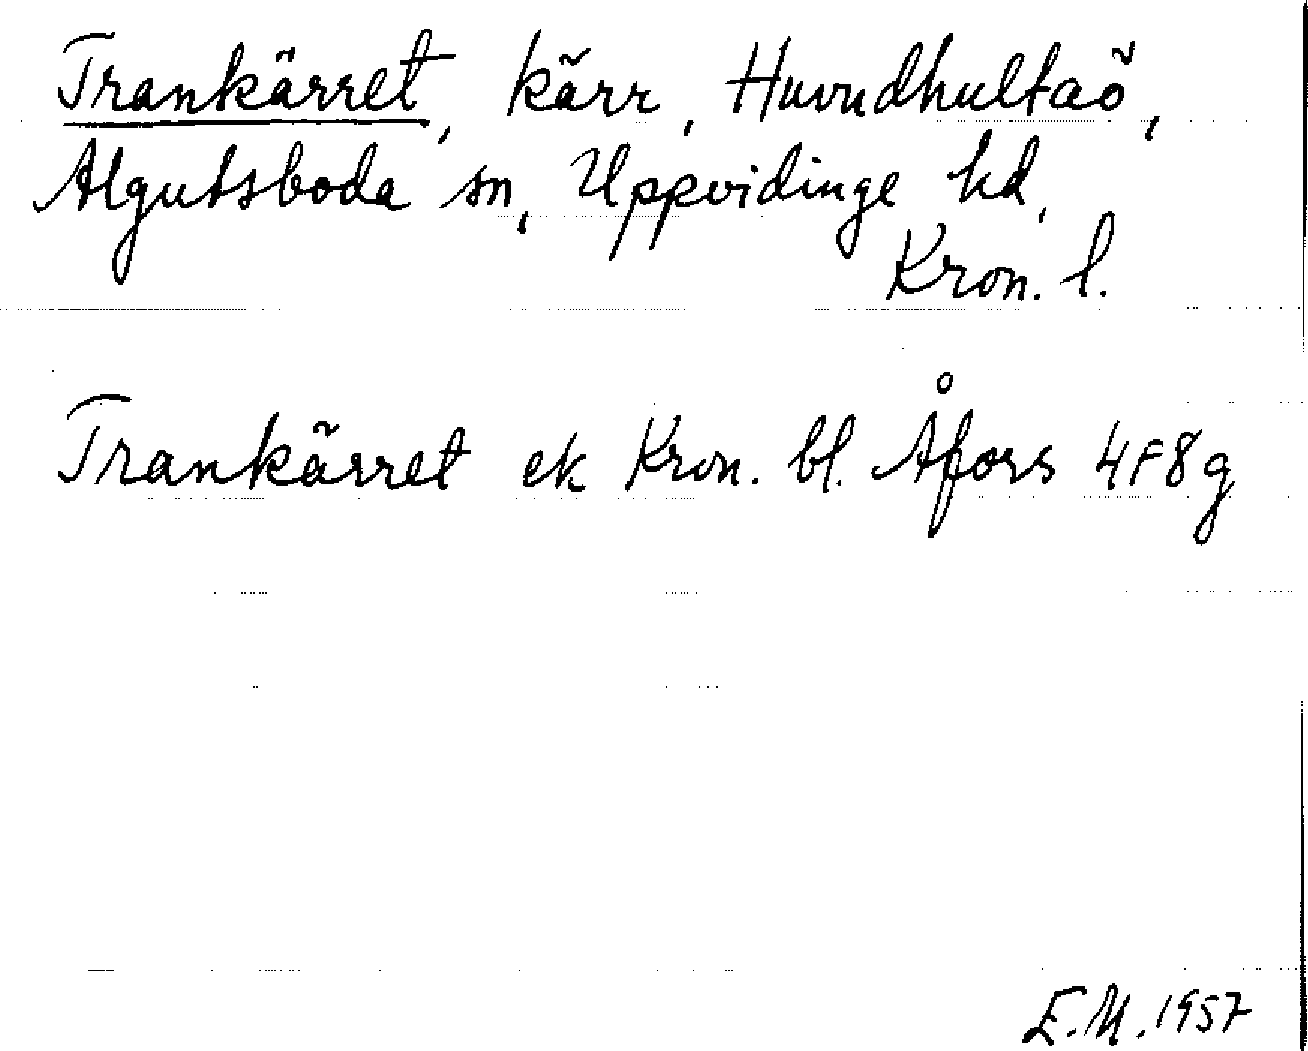 Trankärret, kärr, Huvudhultaö,
Algutsboda sn, Uppvidinge hd,
Kron. l.
Trankärret ek Kron. bl. Åfors 4F8g
E.M. 1957